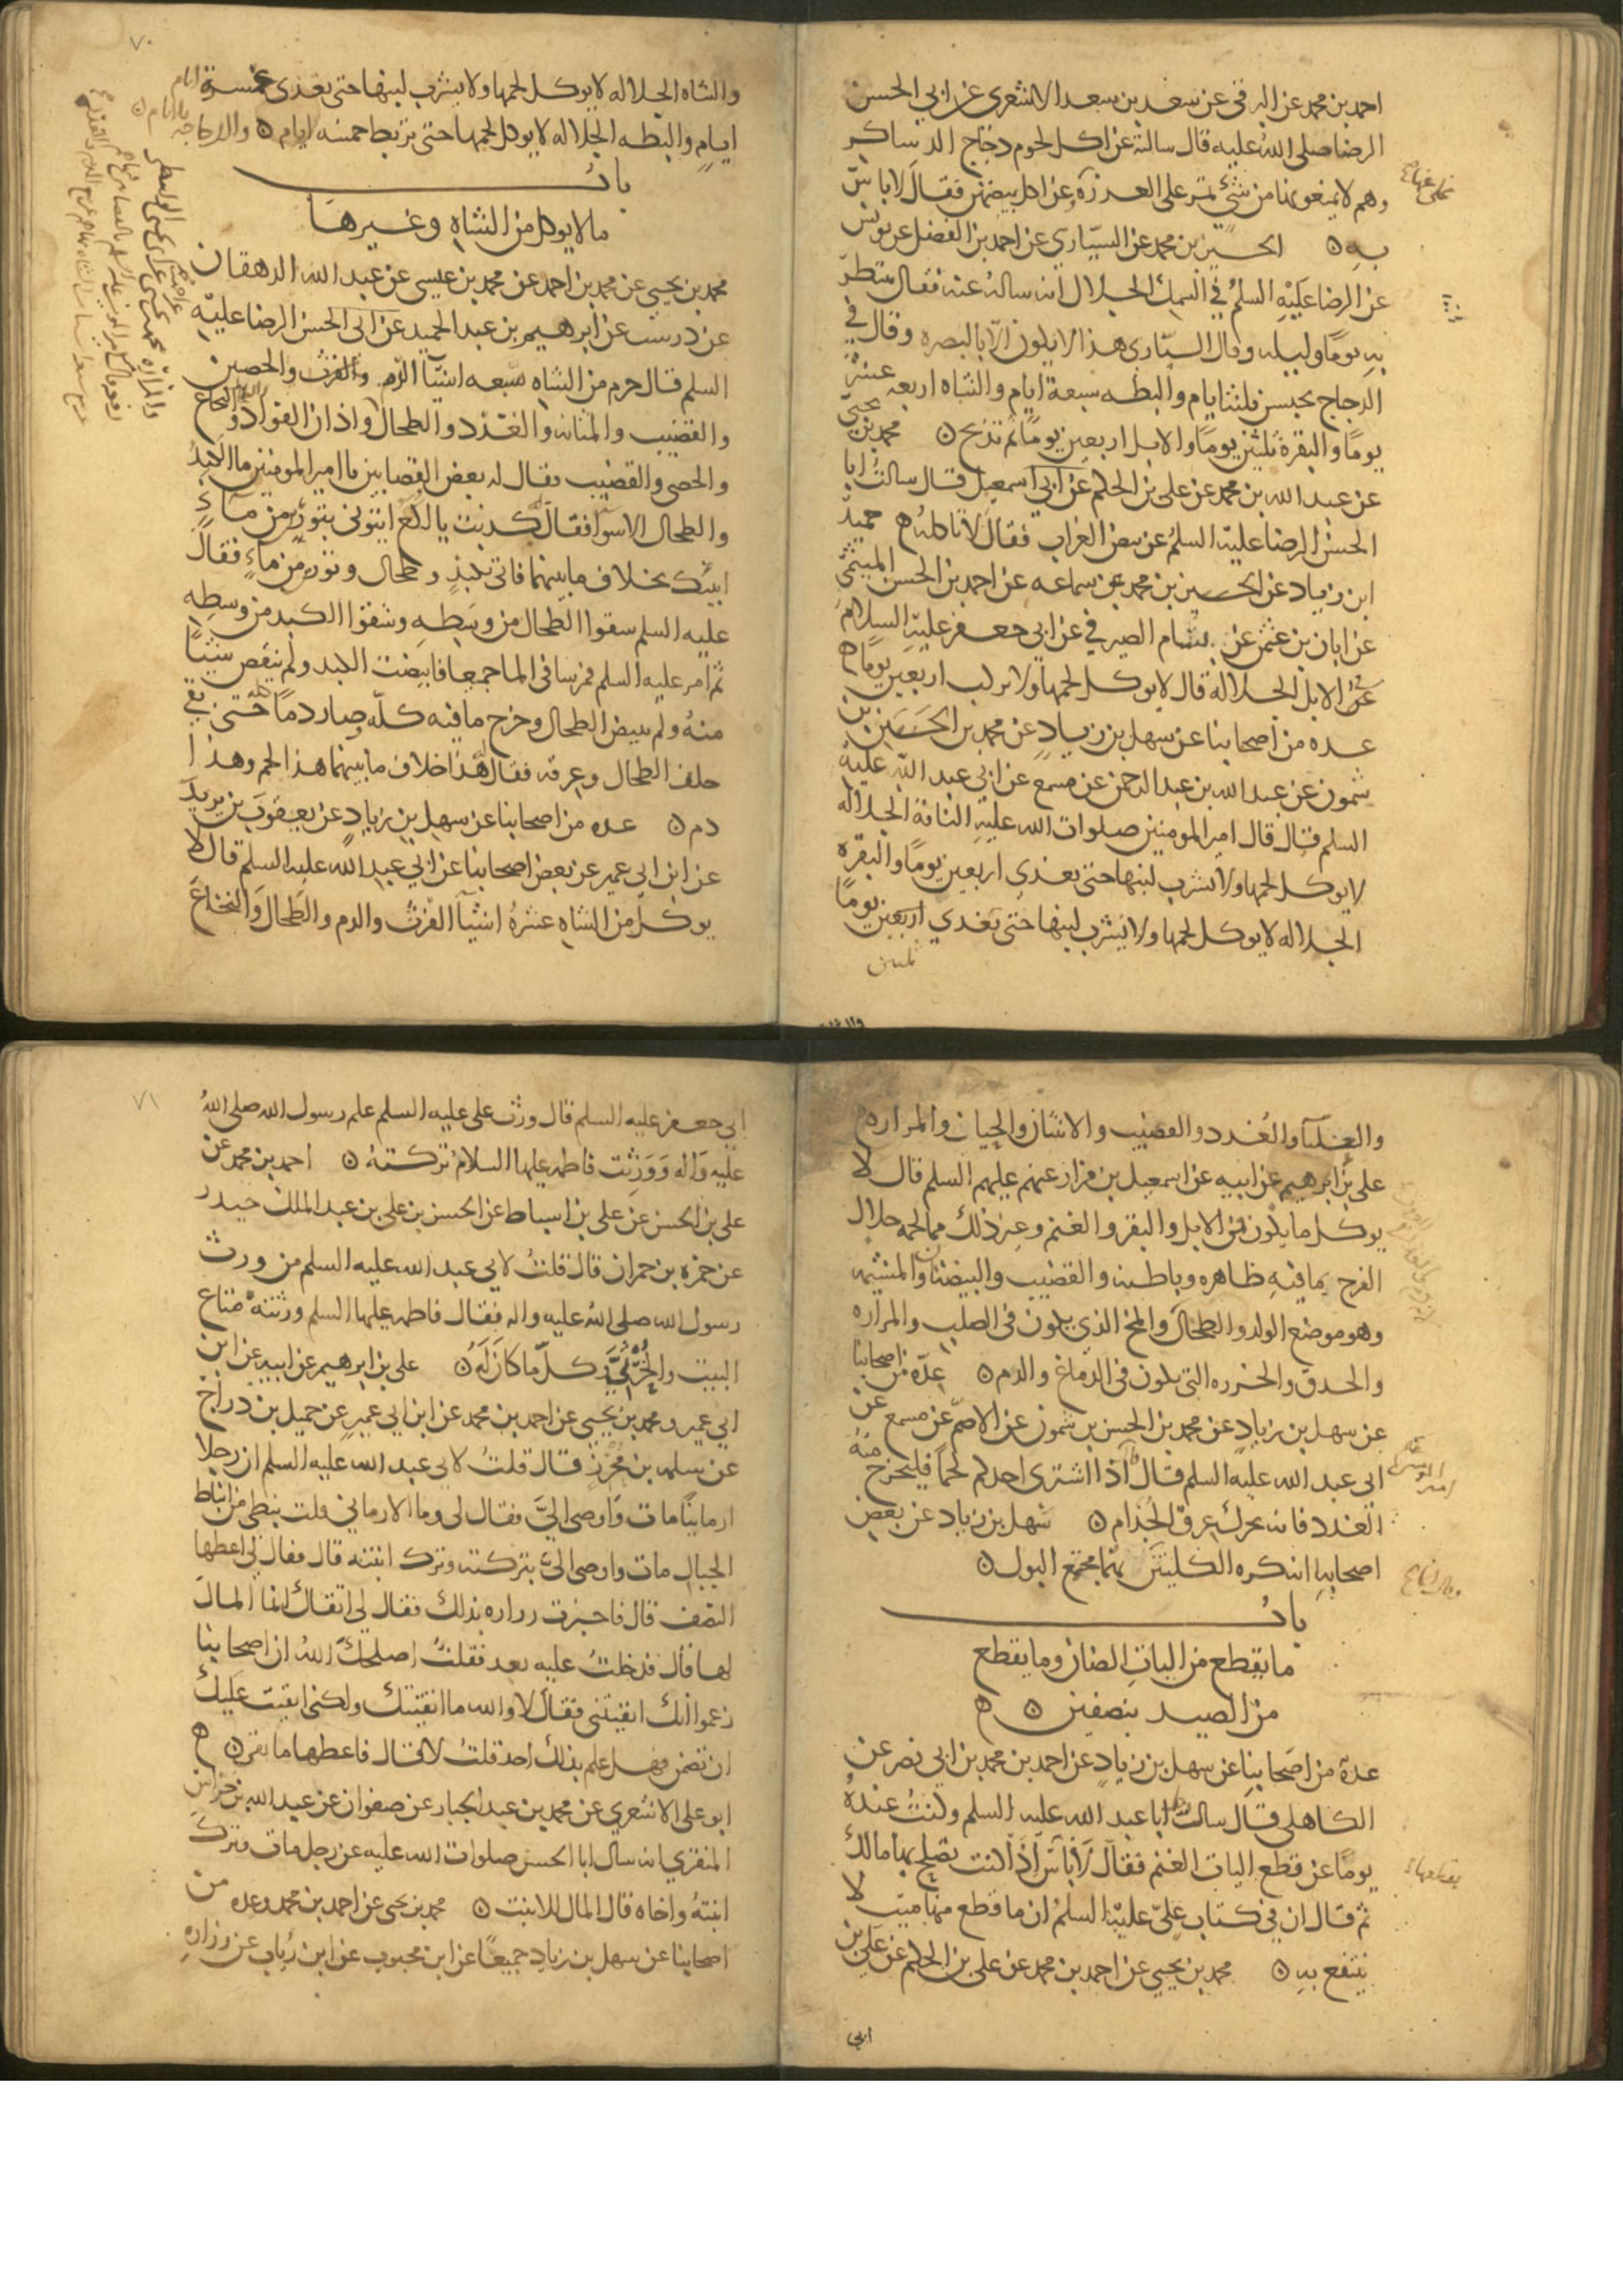 احمد بن محمد عن البرقى عن سعد بن سعد الاشعري عن ابي الحسن
الرضا صلى اللهُ عليه قال سالته عن اكل لحوم دجاج الدساكر
وهم لا يمنعونها من شئ تمر على العذرة وعن اكل بيضهن فقال لا باس
به ن الحسين بن محمد عن السيّاري عن احمد بن الفضل عن يونس
عن الرضا عَلَيْهِ السلمُ في السمك الجلال انه سالهُ عنه فقال ينتظر
به يومًا وليله وقال السيّاري هذا لا يكون الّا بالبصره وقال في
الدجاج يحبس ثلثه ايام والبطه سبعة ايام والشاه اربعه عشر
يومًا والبقرة ثلثين يومًا والابل اربعين يومًا ثم تذبح ن محمد بن يحيى
عن عبد الله بن محمد عن على بن الحكم عن ابي اسمعيل قال سالتُ ابا
الحسن الرضا عليه السلمُ عن بيض الغراب فقال لا تاكلهُ ه حميد
ابن زياد عن الحسين بن محمد بن سماعه عن احمد بن الحسن الميثمي
عن ابان بن عثمن عن بسام الصيرفي عن ابي جعفر عليه السلام
في الابل الجلالة قال لا يوكل لحمها ولا تركب اربعين يومًا ه
عده من اصحابنا عن سهل بن زياد عن محمد بن الحسَن بن
شمون عن عبد الله بن عبد الرحمن عن مسمع عن ابي عبد الله عليه
السلم قال قال امير المومنين صلوات الله عليه الناقة الجلاله
لا يوكل لحمها ولا يشرب لبنها حتى تغذى اربعين يومًا والبقره
الجلاله لا يوكل لحمها ولا يشرب لبنها حتى تغذي اربعين يومًا
ثلثين
٧٠
والشاه الجلاله لا يوكل لحمها ولا يشرب لبنها حتى تغذى خمسة
ايامٍ والبطه الجلاله لا يوكل لحمها حتى تربط خمسه ايام ن والدجاجه
بابُ
ما لا يوكل من الشاهِ وغيرها
محمد بن يحيى عن محمد بن احمد عن محمد بن عيسى عن عبيد الله الدهقان
عن درست عن ابرهيم بن عبد الحميد عن ابى الحسن الرضا عليه
السلم قال حرم من الشاه سبعه اشيآ الدّم والفرث والخصيين
والقضيب والمثانه والغدد والطحال واذان الفواد والنخاع
والخصى والقضيب فقال له بعض القصابين يا امير المومنين ما الكبدُ
والطحال الا سوآ فقال كذبت يا لكع ايتونى بتورين من مآءٍ
ابنئك بخلاف ما بينهما فاتى بكبدٍ وطحال وتورين من ماءٍ فقال
عليه السلم شقوا الطحال من وسطِه وشقوا الكبد من وسطِه
ثم امر عليه السلم فمرسا فى الما جميعا فابيضت الكبد ولم ينقص شيئًا
منهُ ولم يبيض الطحال وخرج ما فيه كلّه وصار دمًا حتى بقى
جلد الطحال وعرقه فقال هذا خلاف ما بينهما هذا لحم وهذا
دم ن عده من اصحابنا عن سهل بن زيادٍ عن يعقوبَ بن يزيد
عن ابن ابى عمير عن بعض اصحابنا عن ابي عبد الله عليه السلم قال لا
يوكل من الشاهِ عشرهُ اشيآ الفرثُ والدم والطحال والنخاع
والعلبآ والغدد والقضيب والانثيان والحيا والمراره
على بن ابرهيم عن ابيه عن اسمعيل بن مرار عنهم عليهم السلم قال لا
يوكل ما يكون من الابل والبقر والغنم وغير ذلك مما لحمه حلال
الفرج بما فيهِ ظاهره وباطنه والقضيب والبيضتان والمشيمه
وهو موضع الولد والطحال والمخ الذي يكون فى الصلب والمراره
والحدق والخرزه التى يكون فى الدماغ والدم ن عدّه من اصحابنا
عن سهل بن زيادٍ عن محمد بن الحسن بن شمون عن الاصمّ عن مسمع عن
ابى عبد الله عليه السلم قال اذا اشترى احدكم لحمًا فليخرج منهُ
الغدد فانه يحرك عرقَ الجُذام ن سَهل بن زياد عن بعض
اصحابهِ انه كره الكليتين وقال انما هما مجتمع البول ن
بابُ
ما يقطع من اليات الضان وما يقطع
من الصيد بنصفين ن ه
عدة من اصحابنا عن سهل بن زيادٍ عن احمد بن محمد بن ابي نصر عن
الكاهلى قال سال رجل ابا عبد الله عليه السلم وكنتُ عندهُ
يومًا عن قطع اليات الغنم فقال لا باس اذا كنت تصلح بها مالك
ثم قال ان في كتاب علىّ عليه السلمُ ان ما قطع منها ميت لا
ينتفع بهِ ن محمد بن يحيى عن احمد بن محمد عن على بن الحكم عن على بن
ابى
٧١
ابى جعفر عليه السلم قال ورث على عليه السلم علم رسول الله صلى اللهُ
عليه واله وَوَرِثت فاطمه عليها السلامُ تركتهُ ن احمد بن محمد عن
على بن الحسن عن على بن اسباط عن الحسن بن على بن عبد الملك حيدر
عن حمزه بن حمران قال قلتُ لابى عبد الله عليه السلم من ورث
رسول الله صلى اللهُ عليه واله فقال فاطمه عليها السلم ورثتهُ متاع
البيت والخُرْثِيَّ وكلّ ما كان لَهُ ن على بن ابرهيم عن ابيه عن ابن
ابي عمير ومحمد بن يحيى عن احمد بن محمد عن ابن ابي عميرٍ عن جميل بن دراج
عن سلمه بن مُحْرِزٍ قال قلتُ لابى عبد الله عليه السلم ان رجلا
ارمانيًا مات وَاوصى الىَّ فقال لى وما الارمانى قلت نبطى من انباط
الجبال مات واوصى الىّ بتركته وترك ابنته قال فقال لى اعطها
النصف قال فاخبرت زراره بذلك فقال لى اتقاك انما المال
لها قال فدخلتُ عليه بعد فقلتُ اصلحك اللهُ ان اصحابنا
زعموا انك اتقيتنى فقال لا والله ما اتقيتك ولكنى اتقيت عليك
ان تضمن فهل علم بذلك احد قلتُ لا قال فاعطها ما بقى ن ه
ابو على الاشعري عن محمد بن عبد الجبار عن صفوان عن عبد الله بن خداش
المنقري انه سال ابا الحسن صلوات الله عليه عن رجل مات وترك
ابنتهُ واخاه قال المال للابنت ن محمد بن يحيى عن احمد بن محمد وعده من
اصحابنا عن سهل بن زيادٍ جميعًا عن ابن محبوب عن ابن رئاب عن زرارهِ